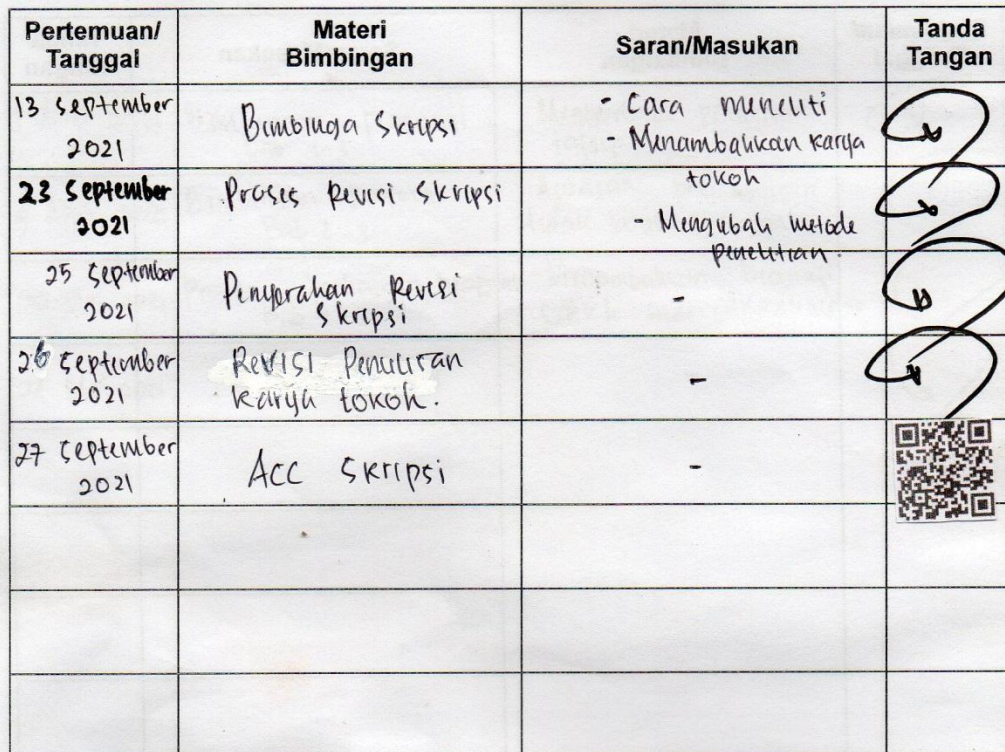 Pertemuan/
Tanggal
Materi
Bimbingan
Saran/Masukan
Tanda
Tangan
13 September
2021
Bimbinga Skripsi
- Cara meneliti
- Menambahkan karya
tokoh
23 September
2021
Proses Revisi Skripsi
- Mengubah metode
penelitian.
25 September
2021
Penyerahan Revisi
Skripsi
-
26 September
2021
Revisi Penulisan
karya tokoh.
-
27 September
2021
ACC Skripsi
-